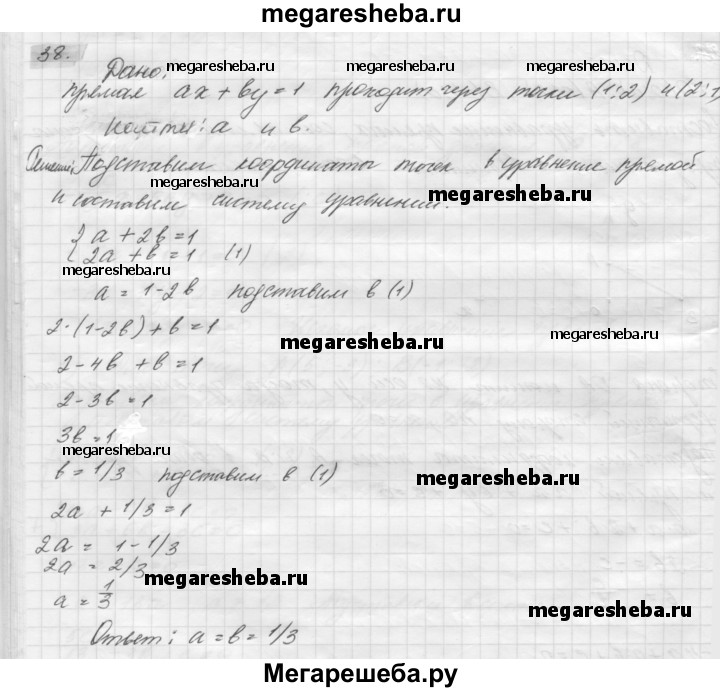 megaresheba.ru
38.
Дано: megaresheba.ru megaresheba.ru
прямая ax + by = 1 проходит через точки (1;2) и (2;1)
Найти: a и b.
Решение: Подставим координаты точек в уравнение прямой
megaresheba.ru megaresheba.ru
и составим систему уравнений:
{ a + 2b = 1
{ 2a + b = 1 (1)
megaresheba.ru
a = 1-2b подставим в (1)
2·(1-2b) + b = 1
megaresheba.ru megaresheba.ru
2-4b + b = 1
2-3b = 1
3b = 1
megaresheba.ru
b = 1/3 подставим в (1)
megaresheba.ru
2a + 1/3 = 1
2a = 1-1/3
2a = 2/3
megaresheba.ru megaresheba.ru
a = 1/3
Ответ: a = b = 1/3
Мегарешеба.ру